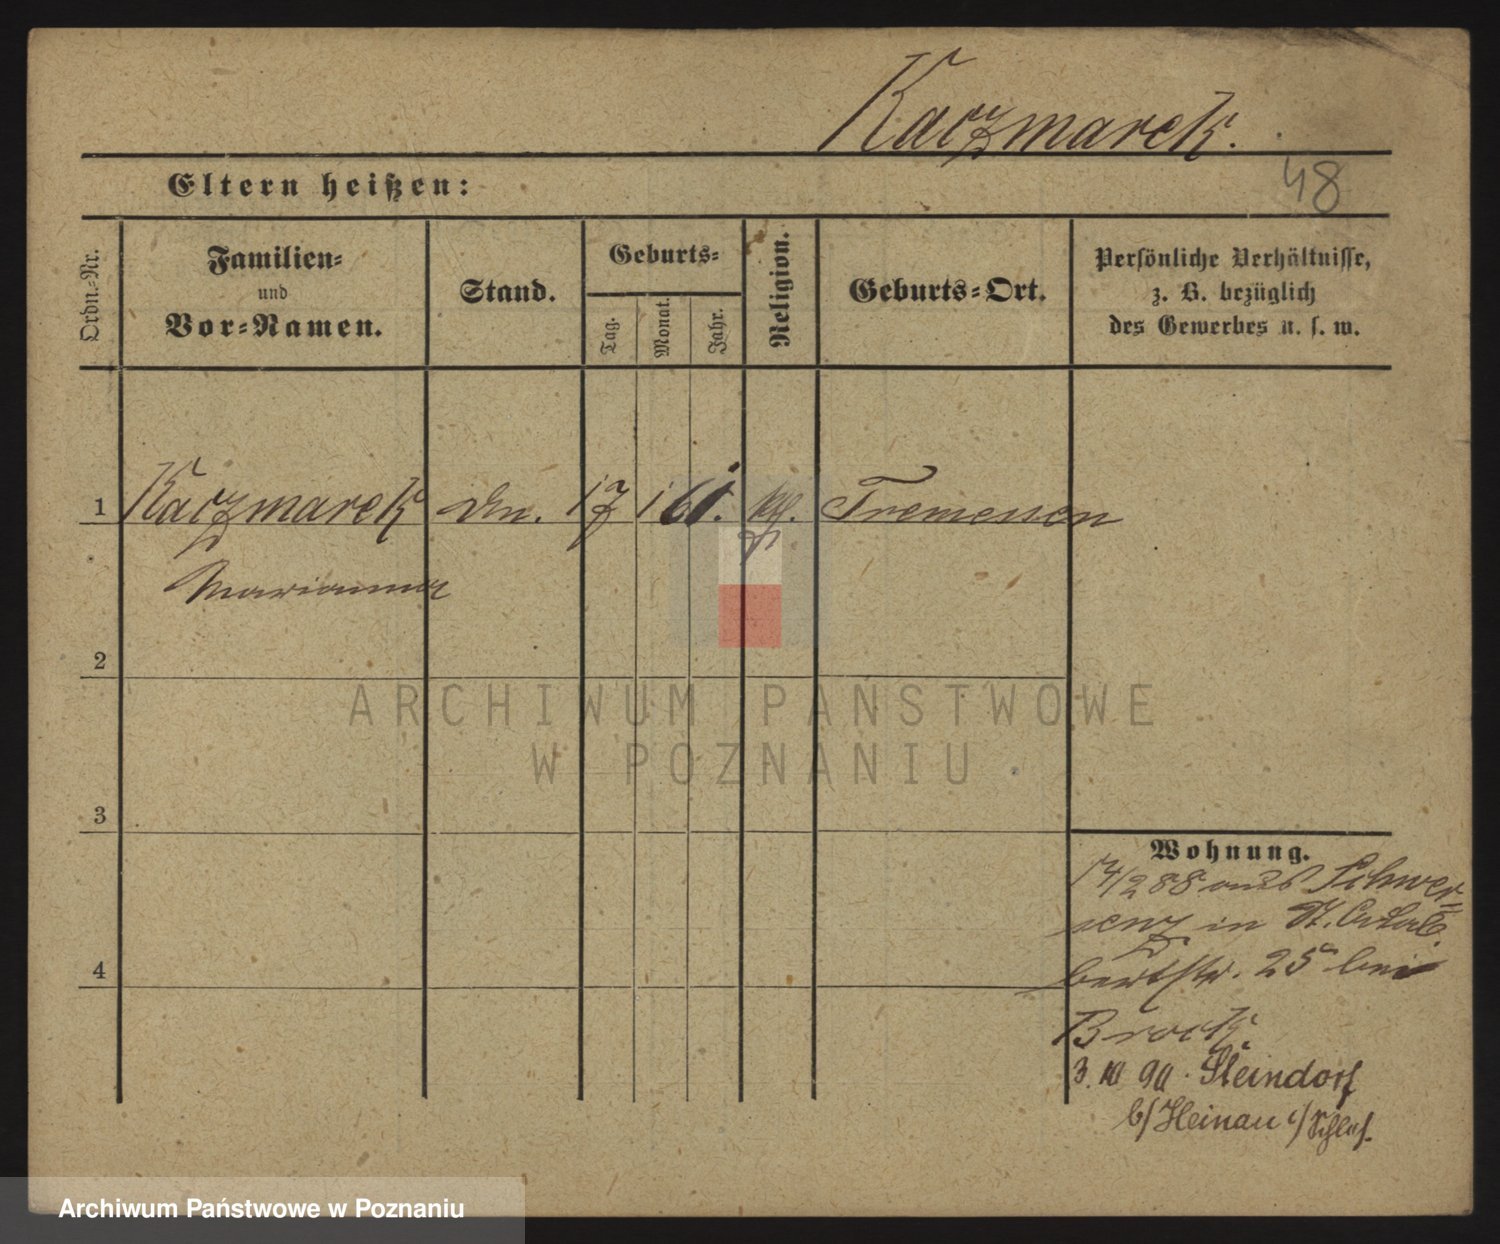 Kaczmarek.
48
Eltern heißen:
Ordn.-Nr.
Familien-
und
Vor-Namen.
Stand.
Geburts-
Tag.
Monat.
Jahr.
Religion.
Geburts-Ort.
Persönliche Verhältnisse,
z. B. bezüglich
des Gewerbes u. s. w.
1 Kaczmarek 17 1 61. Tremessen
Marianna
2
ARCHIWUM PAŃSTWOWE
W POZNANIU
3
Wohnung.
17/2 88 aus Schwer-
senz in St. Adal-
bertstr. 25 bei
4
Brock.
3. 10 90. Steindorf
b/Heinau i/Schles.
Archiwum Państwowe w Poznaniu